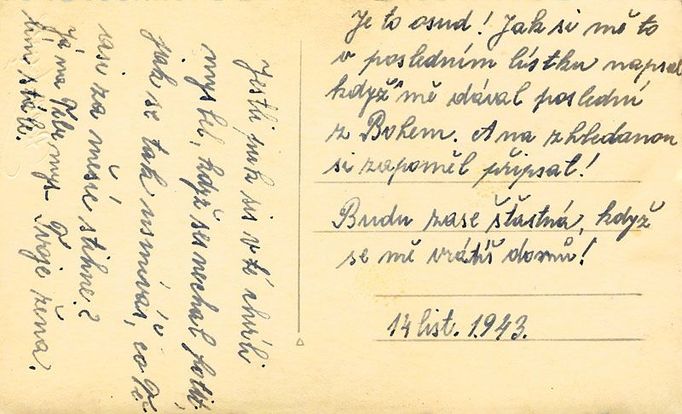 Je to osud! Jak si mě to
v posledním lístku napsal
když mě dával poslední
z Bohem. A na zhledanou
si zapoměl připsat!
Budu zase šťastná, když
se mě vrátíš domů!
14 list. 1943.
Jestli pak si v té chvíli
myslel, když se nechal fotit,
jak se tak usmíváš, co Tě
asi za měsíc stihne?
Já na Tebe mys
tím stále. Tvoje žena.